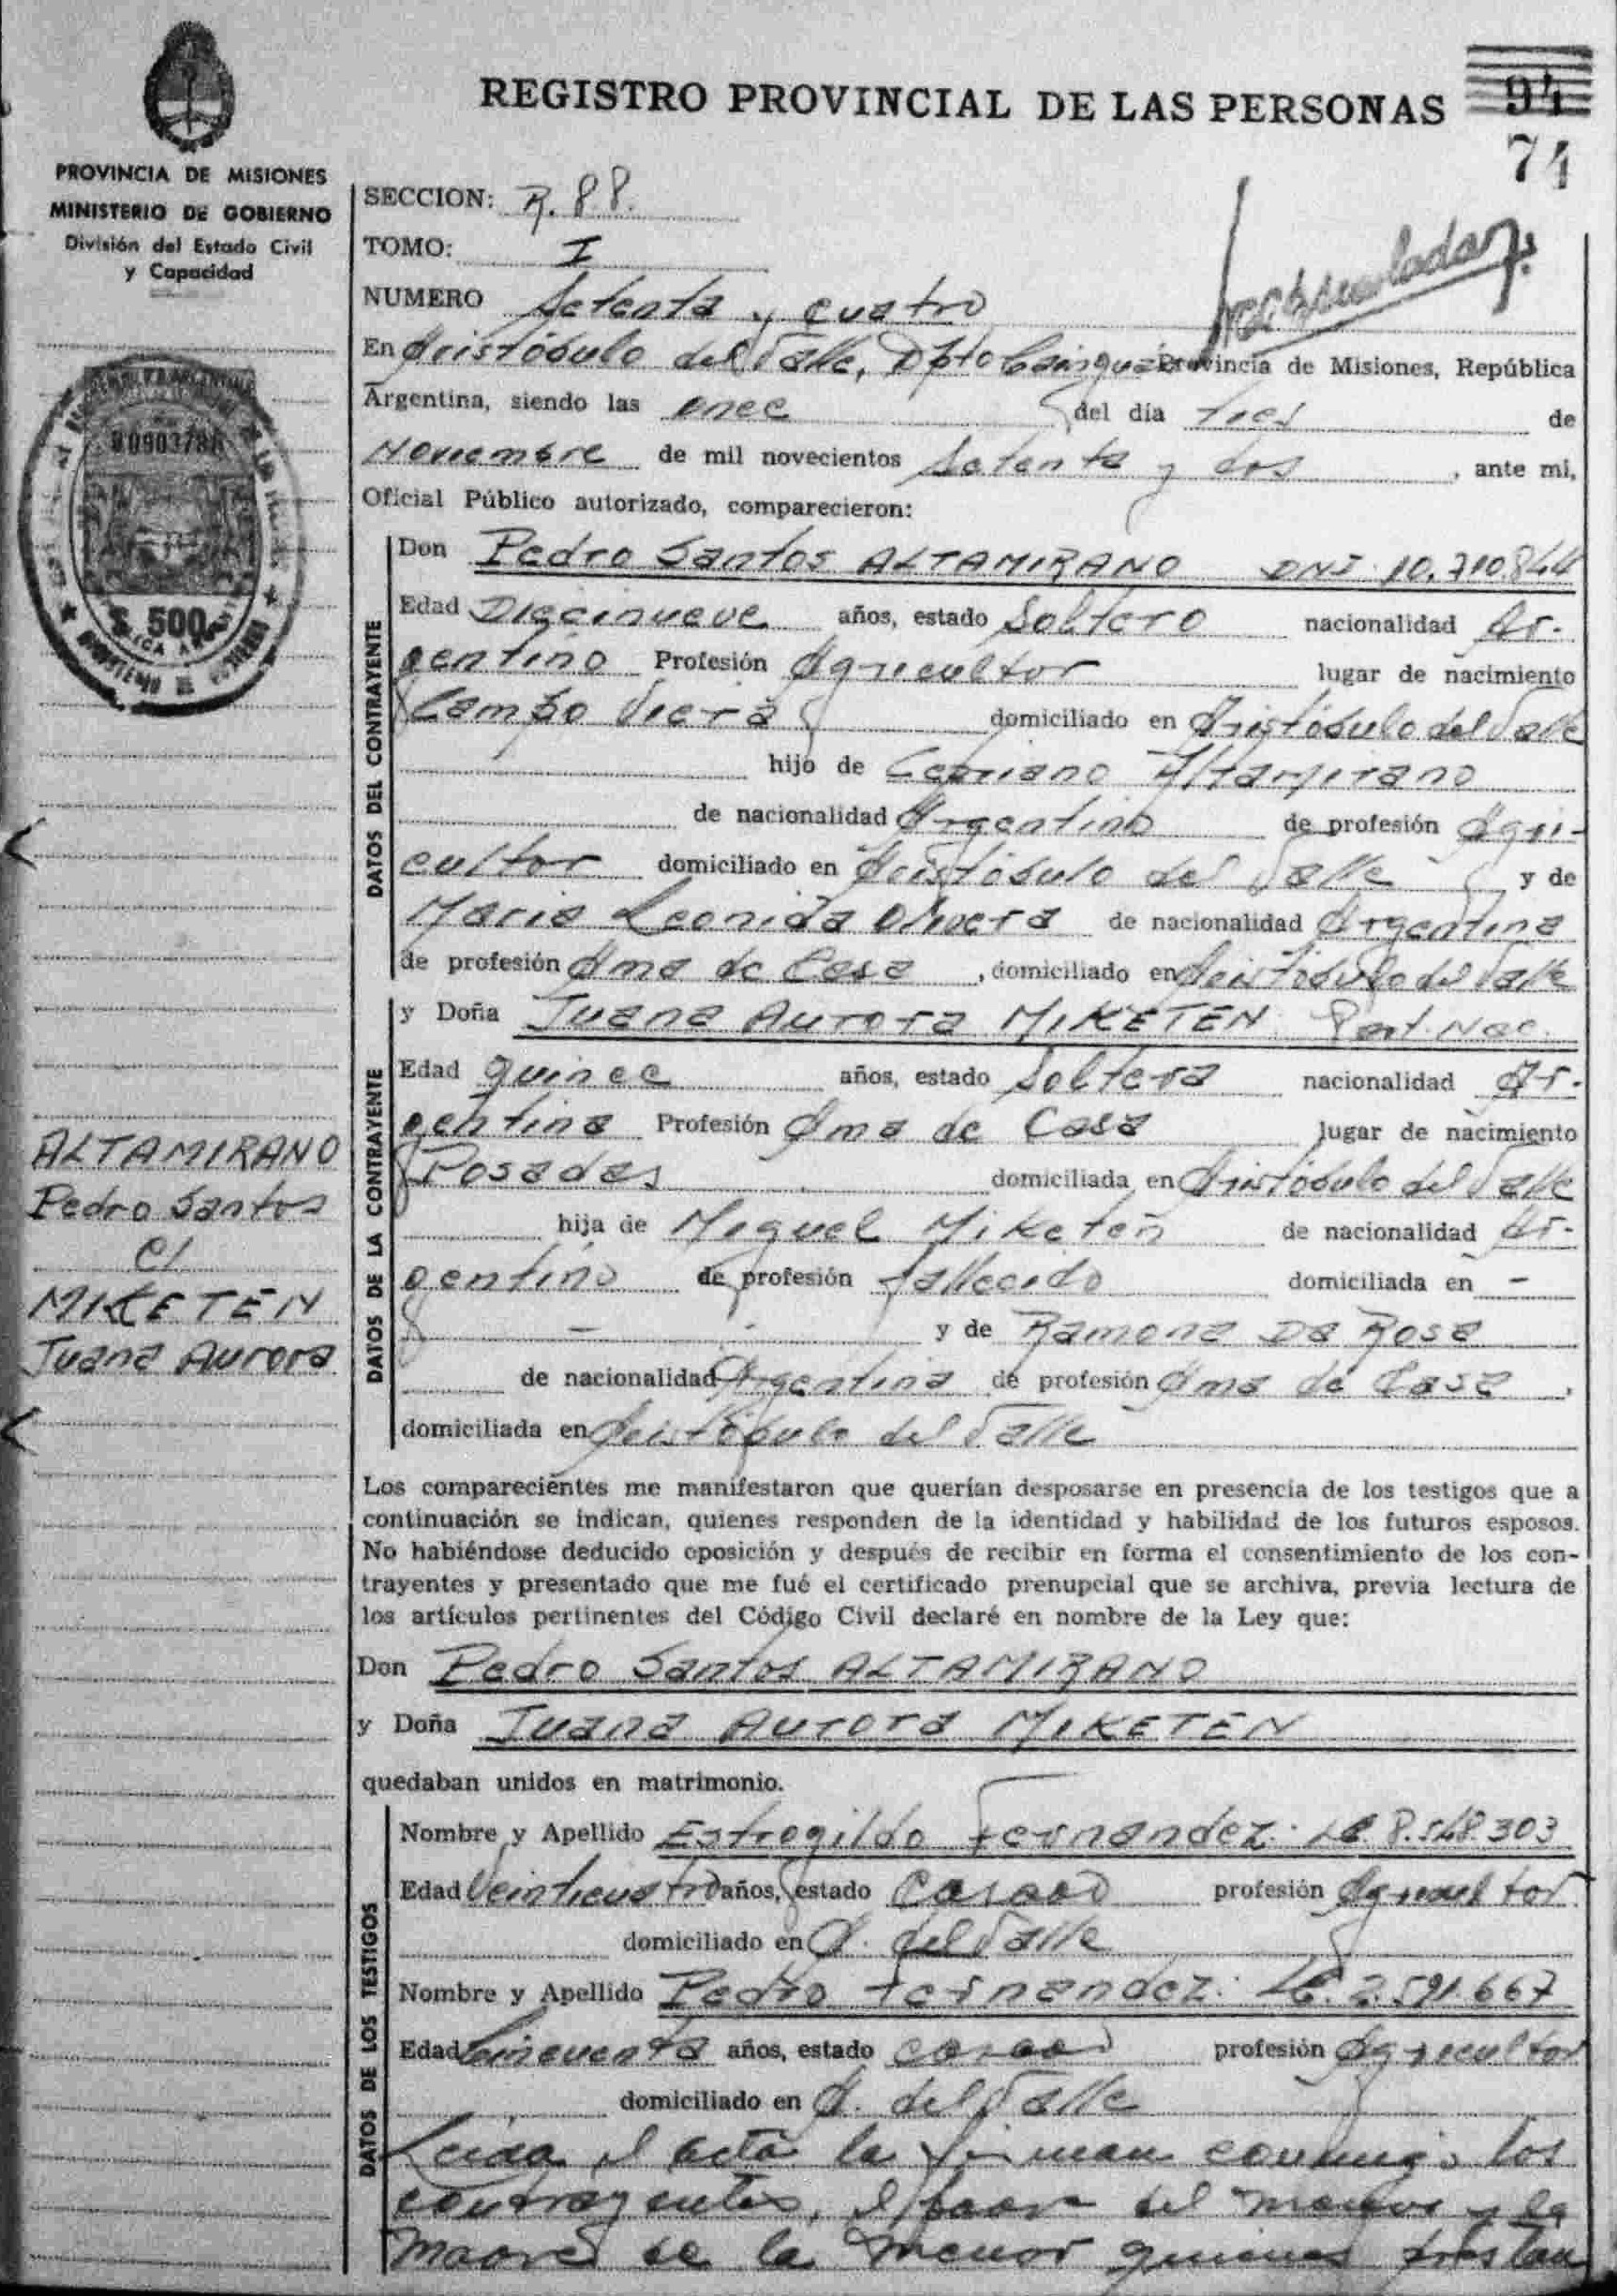 REGISTRO PROVINCIAL DE LAS PERSONAS
94
74
PROVINCIA DE MISIONES
MINISTERIO DE GOBIERNO
División del Estado Civil
y Capacidad
SECCION: R. 88.
TOMO: I
NUMERO Setenta y cuatro
En Aristóbulo del Valle, Dpto Cainguás Provincia de Misiones, República
Argentina, siendo las once del día tres de
Noviembre de mil novecientos Setenta y dos, ante mi,
Oficial Público autorizado, comparecieron:
$ 500
DATOS DEL CONTRAYENTE
Don Pedro Santos ALTAMIRANO DNI 10.710.844
Edad Diecinueve años, estado Soltero nacionalidad Ar-
gentino Profesión Agricultor lugar de nacimiento
Campo Viera domiciliado en Aristóbulo del Valle
hijo de Cepriano Altamirano
de nacionalidad Argentino de profesión Agri-
cultor domiciliado en Aristóbulo del Valle y de
Maria Leonida Olivera de nacionalidad Argentina
de profesión Ama de Casa, domiciliado en Aristóbulo del Valle
DATOS DE LA CONTRAYENTE
y Doña Juana Aurora MIKETEN Part. Nac.
Edad quince años, estado Soltera nacionalidad Ar-
gentina Profesión Ama de Casa lugar de nacimiento
Posadas domiciliada en Aristóbulo del Valle
hija de Miguel Miketen de nacionalidad Ar-
gentino de profesión fallecido domiciliada en -
- y de Ramona Da Rosa
de nacionalidad Argentina de profesión Ama de Casa,
domiciliada en Aristóbulo del Valle
ALTAMIRANO
Pedro Santos
c/
MIKETEN
Juana Aurora
Los comparecientes me manifestaron que querían desposarse en presencia de los testigos que a
continuación se indican, quienes responden de la identidad y habilidad de los futuros esposos.
No habiéndose deducido oposición y después de recibir en forma el consentimiento de los con-
trayentes y presentado que me fué el certificado prenupcial que se archiva, previa lectura de
los artículos pertinentes del Código Civil declaré en nombre de la Ley que:
Don Pedro Santos ALTAMIRANO
y Doña Juana Aurora MIKETEN
quedaban unidos en matrimonio.
DATOS DE LOS TESTIGOS
Nombre y Apellido Estrogildo Fernandez. LE. 8.548.303
Edad Veinticuatro años, estado casado profesión Agricultor
domiciliado en A. del Valle
Nombre y Apellido Pedro Fernandez. LE. 2.591.667
Edad Cincuenta años, estado casado profesión Agricultor
domiciliado en A. del Valle
Leida el acta la firman conmigo los
contrayentes, el padre del menor y la
madre de la menor quienes prestan